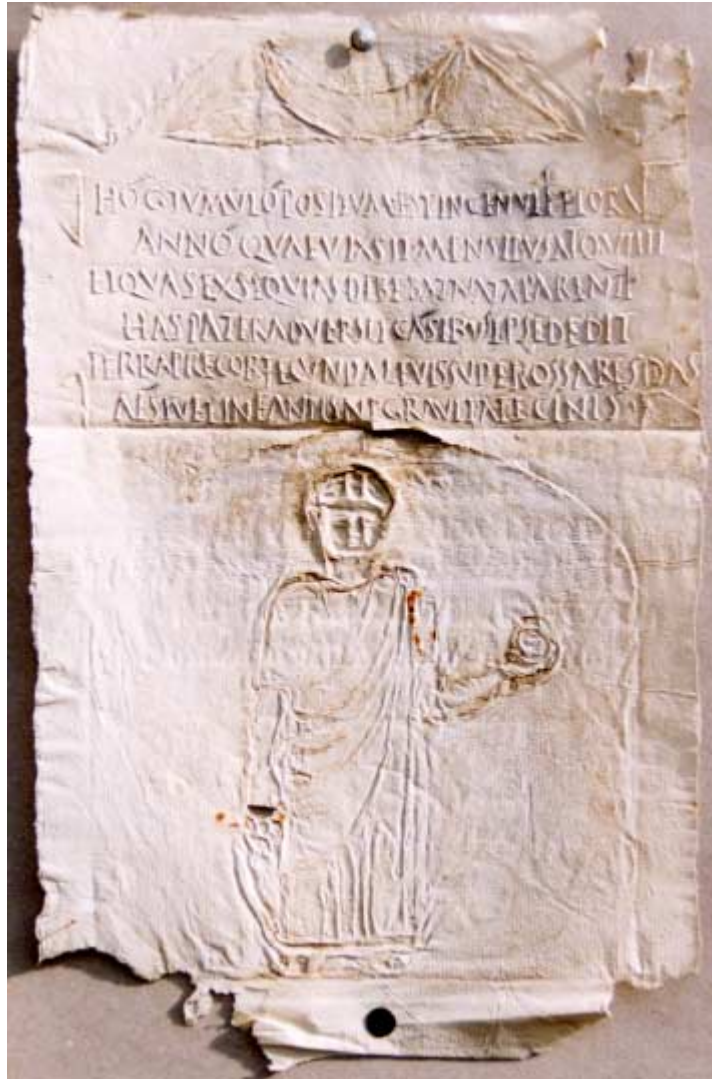 HÓC TVMVLÓ POSITVM EST
ANNÓ QVAE VIXSIT MENSIBVS ATQ VIIII
ET QVAS EXSEQVIAS DEBEBAT NATA PARENTI
HAS PATER ADVERSIS CASIBVS IPSE DEDIT
TERRA PRECOR FECVNDA LEVIS SVPER OSSA RESIDAS
AESTVET INFANTIS NE GRAVITATE CINIS